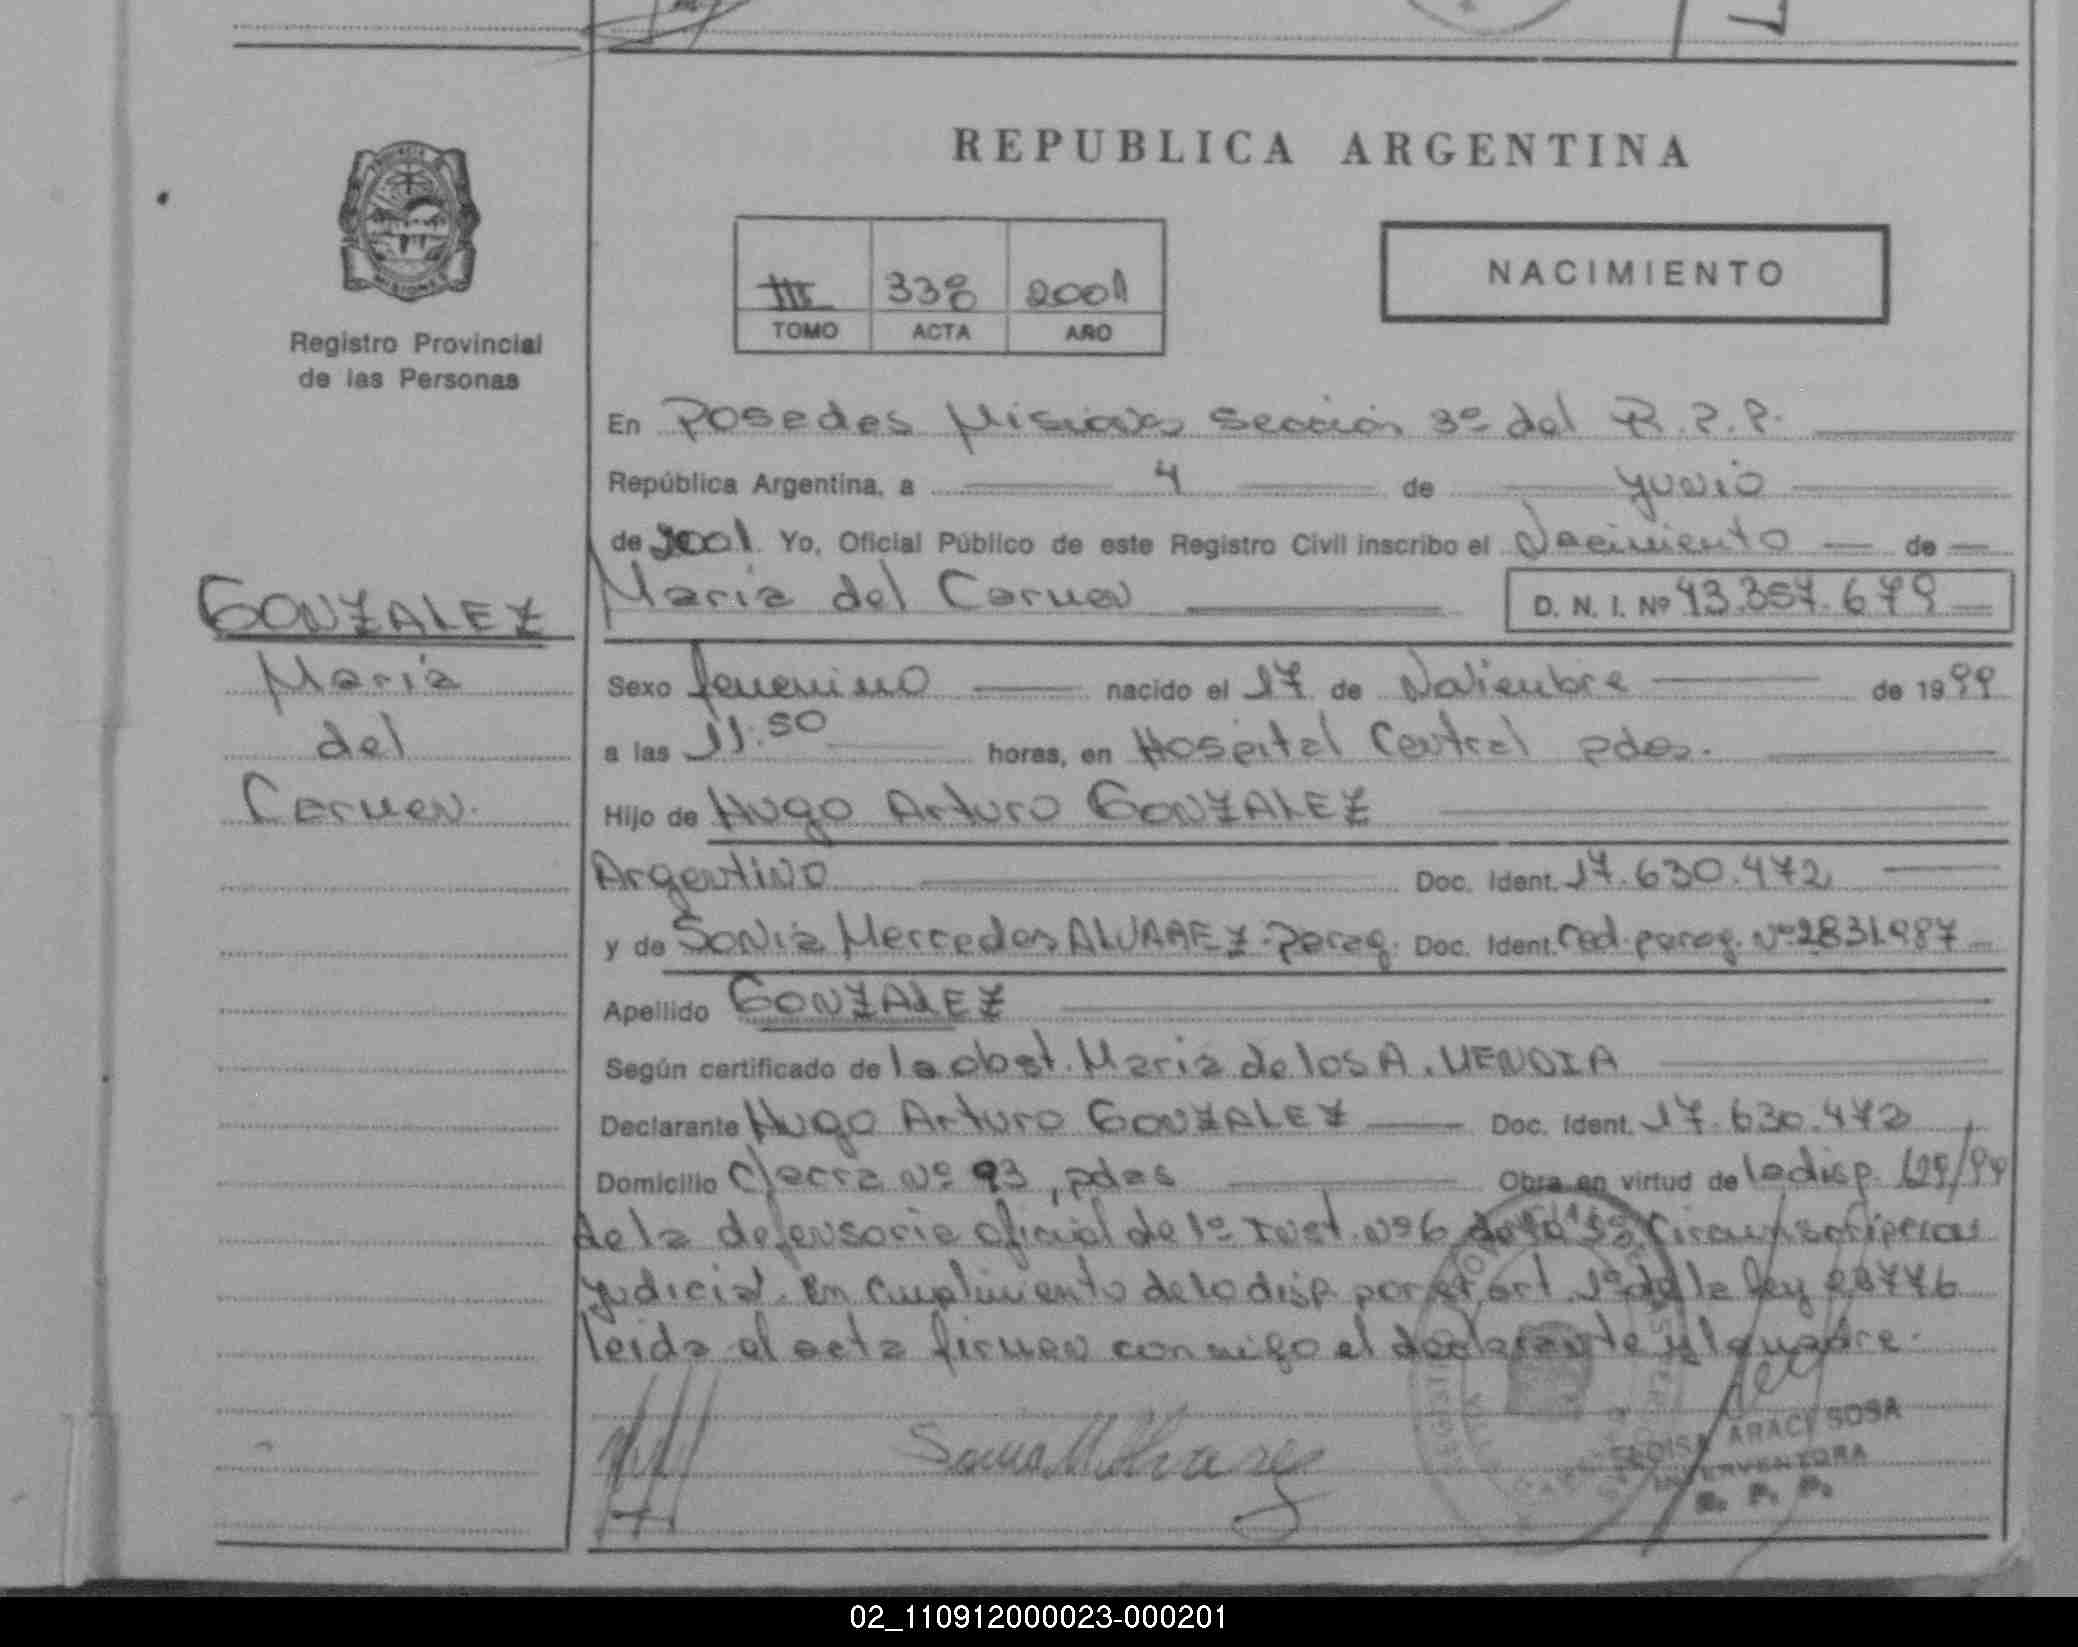 REPUBLICA ARGENTINA
NACIMIENTO
III 338 2001
TOMO ACTA AÑO
Registro Provincial
de las Personas
En Posedes Misiones Sección 3º del R.P.P.
República Argentina, a 4 de junio
de 2001. Yo, Oficial Público de este Registro Civil inscribo el Nacimiento de
GONZALEZ
María
del
Carmen.
María del Carmen D. N. I. Nº 43.357.679
Sexo femenino nacido el 17 de Noviembre de 1999
a las 11:50 horas, en Hospital Central pdas.
Hijo de Hugo Arturo GONZALEZ
Argentino Doc. Ident. 17.630.472
y de Sonia Mercedes ALVAREZ-parag. Doc. Ident. Ced. parag. Nº 2831987
Apellido GONZALEZ
Según certificado de la obst. María de los A. MENDIA
Declarante Hugo Arturo GONZALEZ Doc. Ident. 17.630.472
Domicilio Chacra Nº 93, pdas Obra en virtud de la disp. 629/99
de la defensoria oficial de 1º Inst. Nº 6 de la Circunscripcion
judicial. En cumplimiento de lo disp. por el art. 1º de la ley 23776
leida el acta firman conmigo el declarante y la madre.
Sonia M Alvarez
ELOISA ARACI SOSA
INTERVENTORA
R. P. P.
02_110912000023-000201